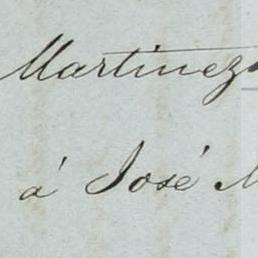 Martinez
á José M